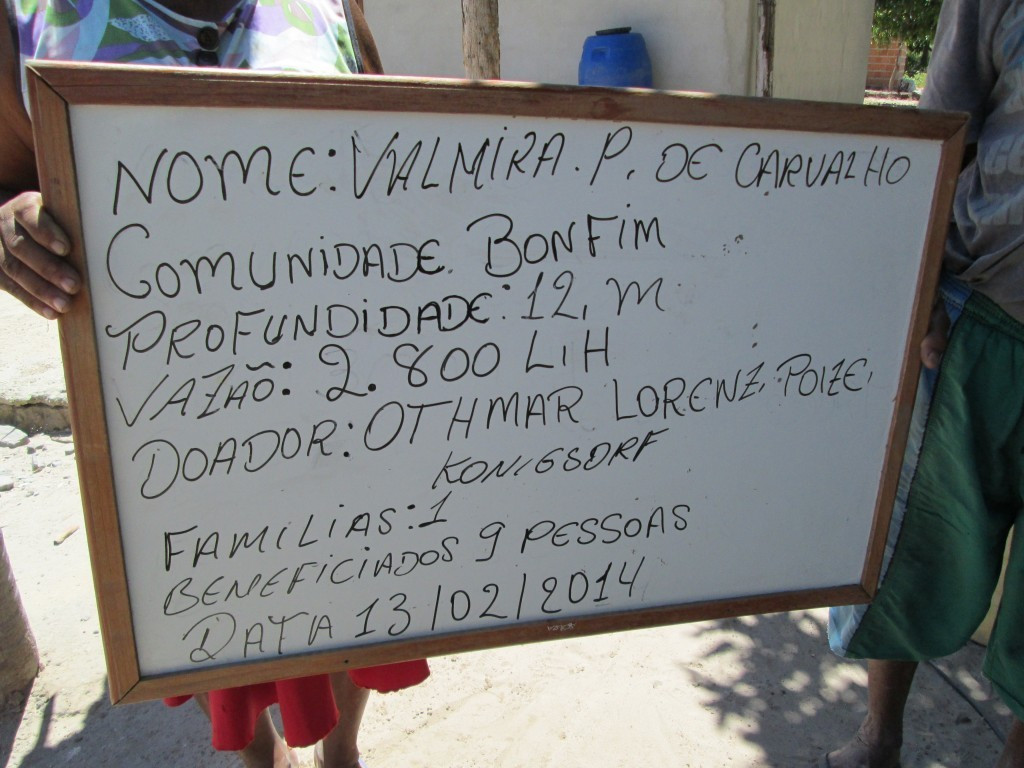 NOME: VALMIRA. P. DE CARVALHO
COMUNIDADE. BONFIM
PROFUNDIDADE: 12, M
VAZÃO: 2.800 L I H
DOADOR: OTHMAR LORENZ, POIZE,
KONIGSDRF
FAMILIAS: 1
BENEFICIADOS 9 PESSOAS
DATA 13/02/2014